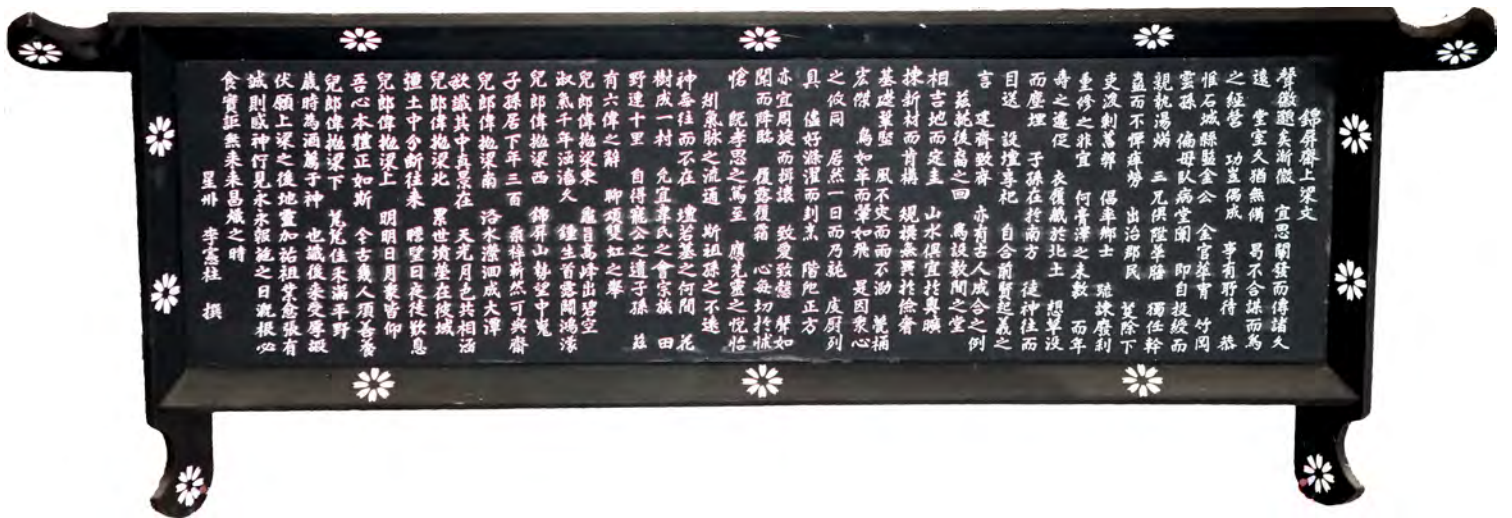 錦屏齋上梁文
聲徽邈矣漸微 宜思闡發而傳諸久
遠 堂室久猶無備 易不合謀而爲
之經營 功豈偶成 事有所待 恭
惟石城縣監金公 金官華胄 竹岡
雲孫 偏母臥病堂闈 卽自投綬而
親執湯 三兄俱陞 獨任幹
蠱而不憚瘁勞 出治郡民 芟除下
吏浚剝舊弊 倡率鄉士 疏諫廢刹
重修之非宜 何膏澤之未敷 而年
壽之遽促 衣履藏於北土 想草没
而塵埋 子孫在於南方 徒神往而
目送 設壇享祀 自合前賢起義之
言 建齋致齊 亦有古人成合之例
茲 後裔之 爲設數間之堂
相吉地而定圭 山水俱宜於奧曠
揀新材而肯構 規模無異於儉奢
基礎鞏堅 風不突而雨不泐 甍桷
宏傑 鳥如革而翬如飛 是因衆心
之攸同 居然一日而乃訖 庋厨列
具 儘好滌濯而刲烹 階戺正方
亦宜周旋而揖讓 致愛致慤 聲如
聞而降臨 履露履霜 心每切於怵
愴 旣孝思之篤至 應先靈之悅怡
矧氣脉之流通 斯祖孫之不遠
神無往而不在 壇若墓之何間 花
樹成一村 允宜韋氏之會宗族 田
野連十里 自得龐公之遺子孫 茲
有六偉之辭 聊頌雙虹之擧
兒郎偉抛梁東 龜首高峰出碧空
淑氣千年涵滀久 鍾生首露闢鴻濛
兒郎偉抛梁西 錦屏山勢望中
子孫居下年三百 桑梓 然可與齊
兒郎偉抛梁南 洛水瀠洄成大潭
欲識其中真景在 天光月色共相涵
兒郎偉抛梁北 累世墳塋在 城
疆土中分斷往來 瞻望日夜徒歎息
兒郎偉抛梁上 明明日月衆皆仰
吾心本體正如斯 今古幾人須善養
兒郎偉抛梁下 芃芃佳禾滿平野
歲時為酒薦于神 也識後來受厚嘏
伏願上梁之後地靈加祐祖業愈張有
誠則感神行見永永報祀之日親根必
食實証無未來昌熾之時
星州 李憲柱 撰